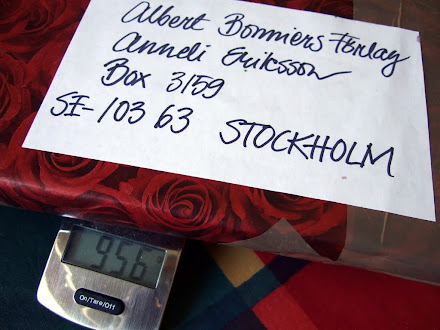 Albert Bonniers Förlag
Anneli Eriksson
Box 3159
SE-103 63 STOCKHOLM
956
On/Tare/Off